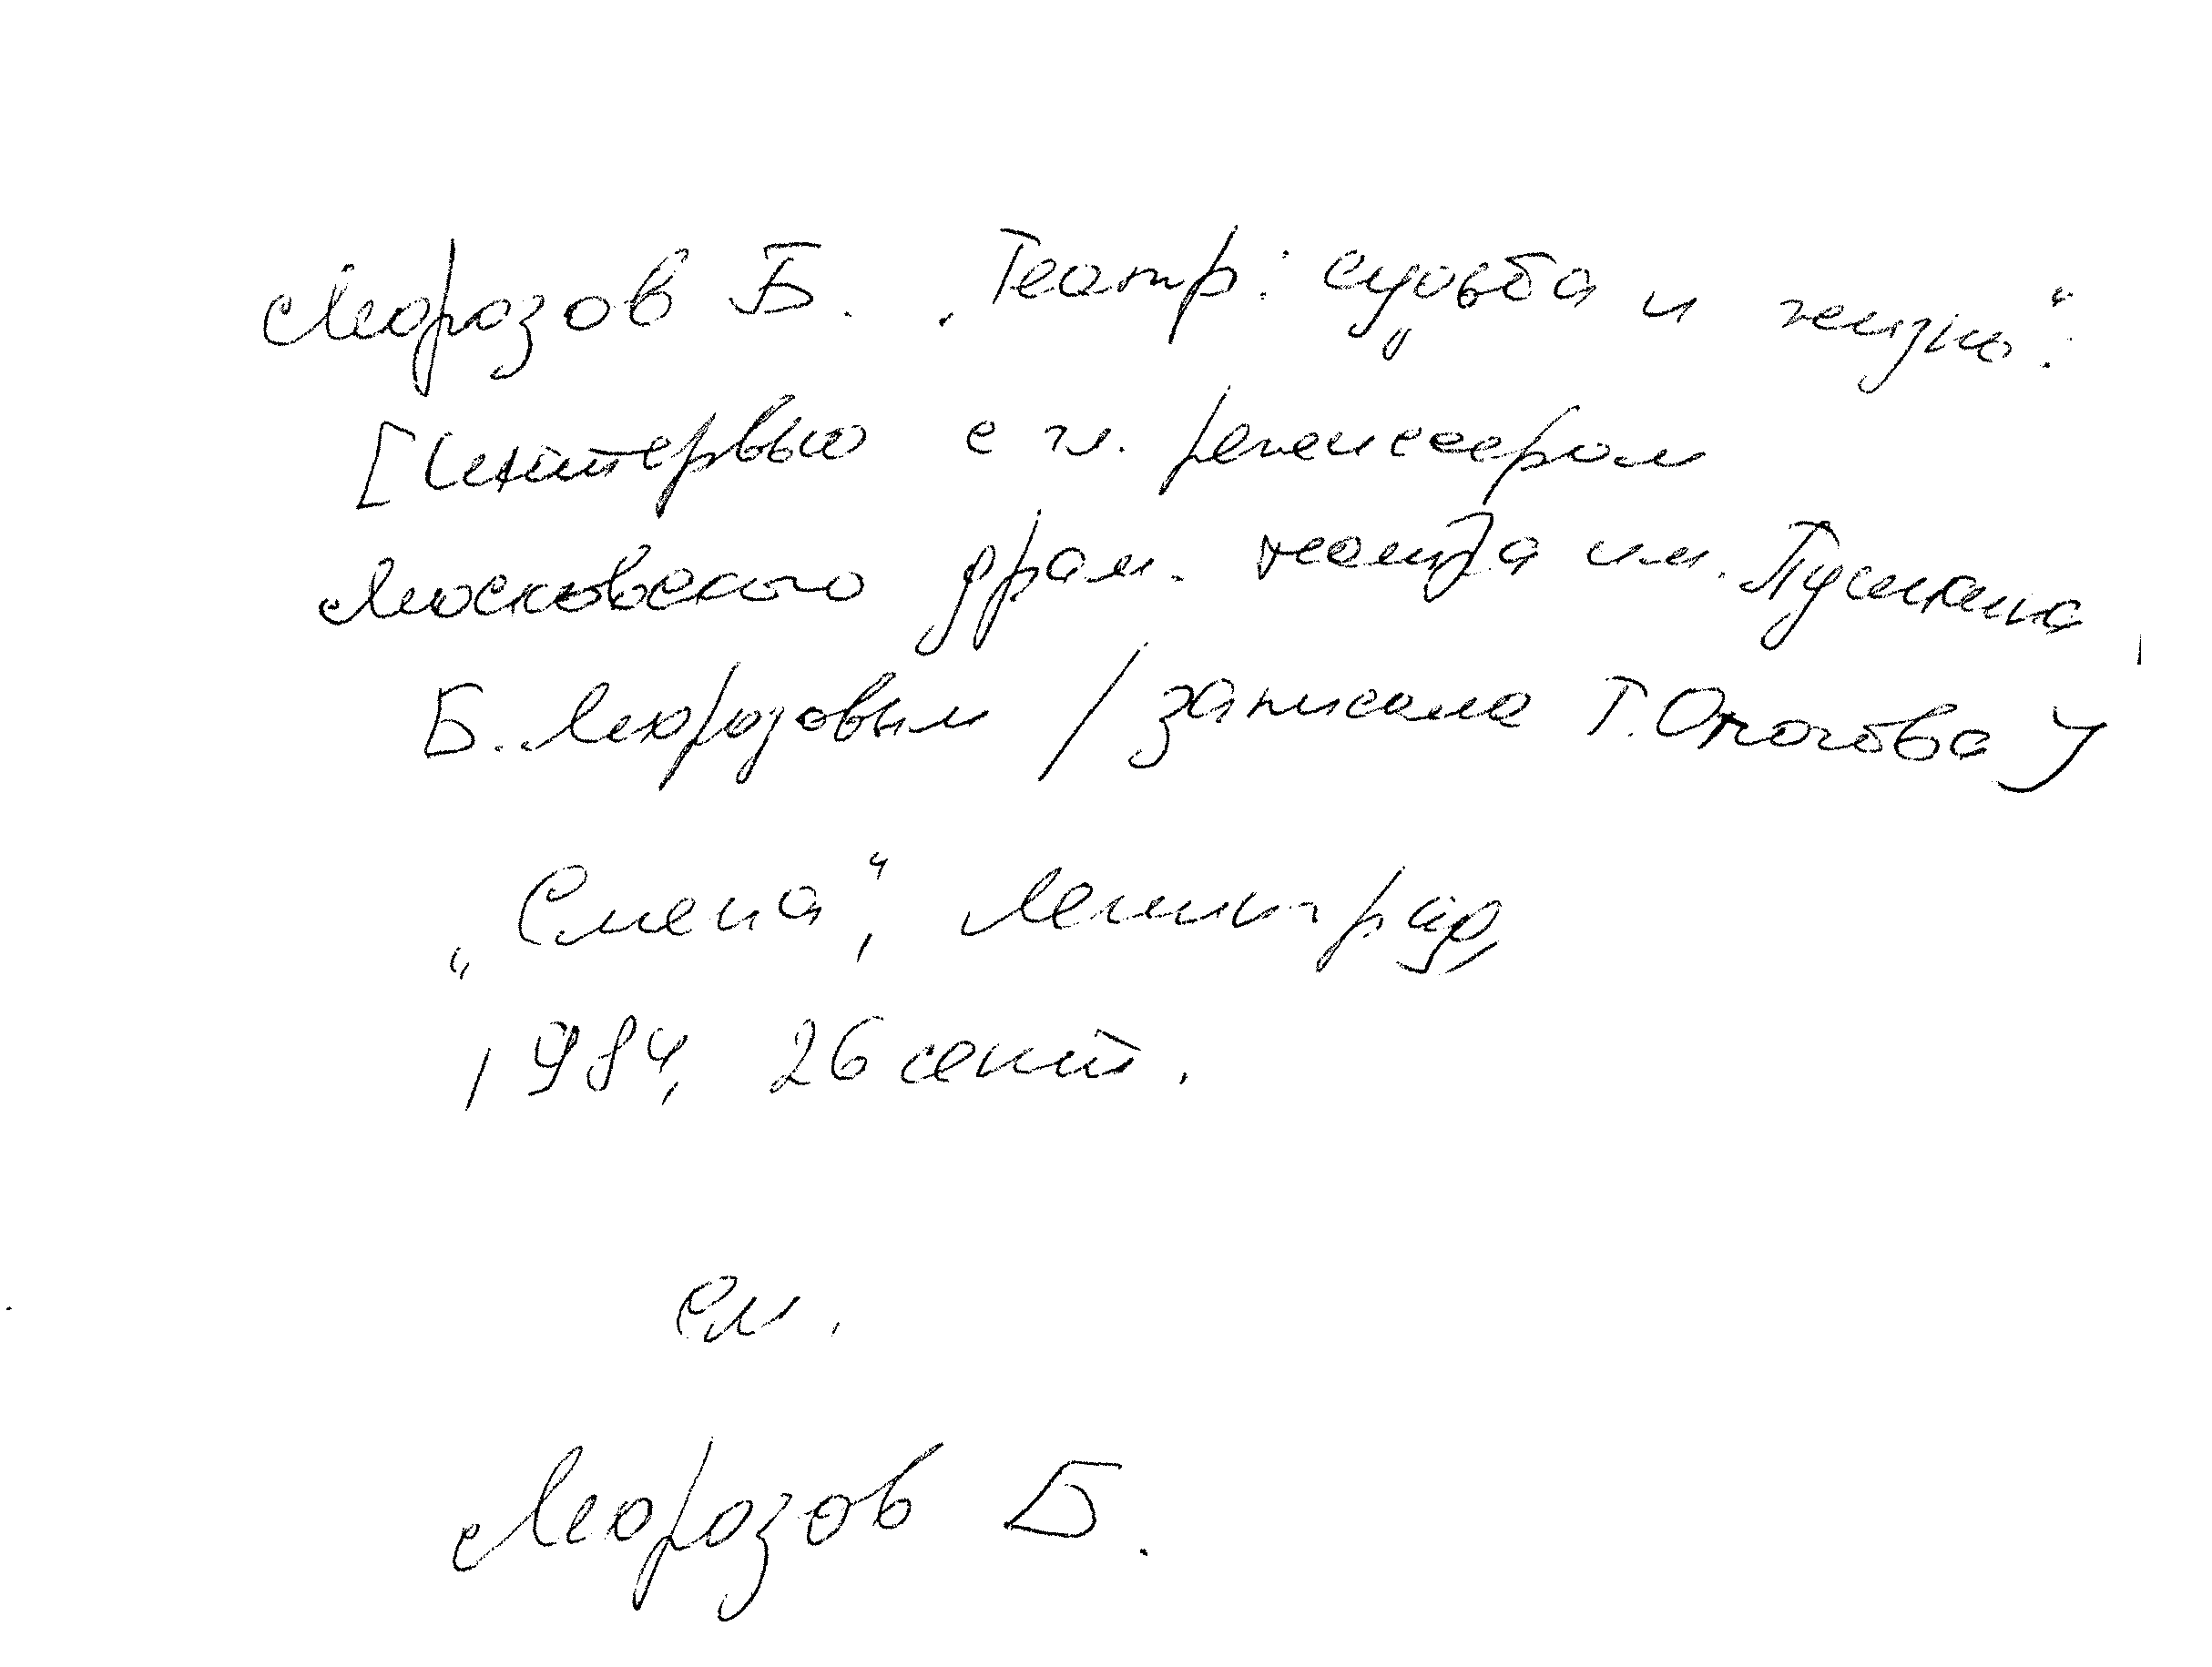 Морозов Б. „Театр: судьба и жизнь“.
[Интервью с гл. режиссером
Московского драм. театра им. Пушкина
Б. Морозовым / записала Т. Отюгова]
„Смена“, Ленинград,
1984, 26 сент.
см.
Морозов Б.